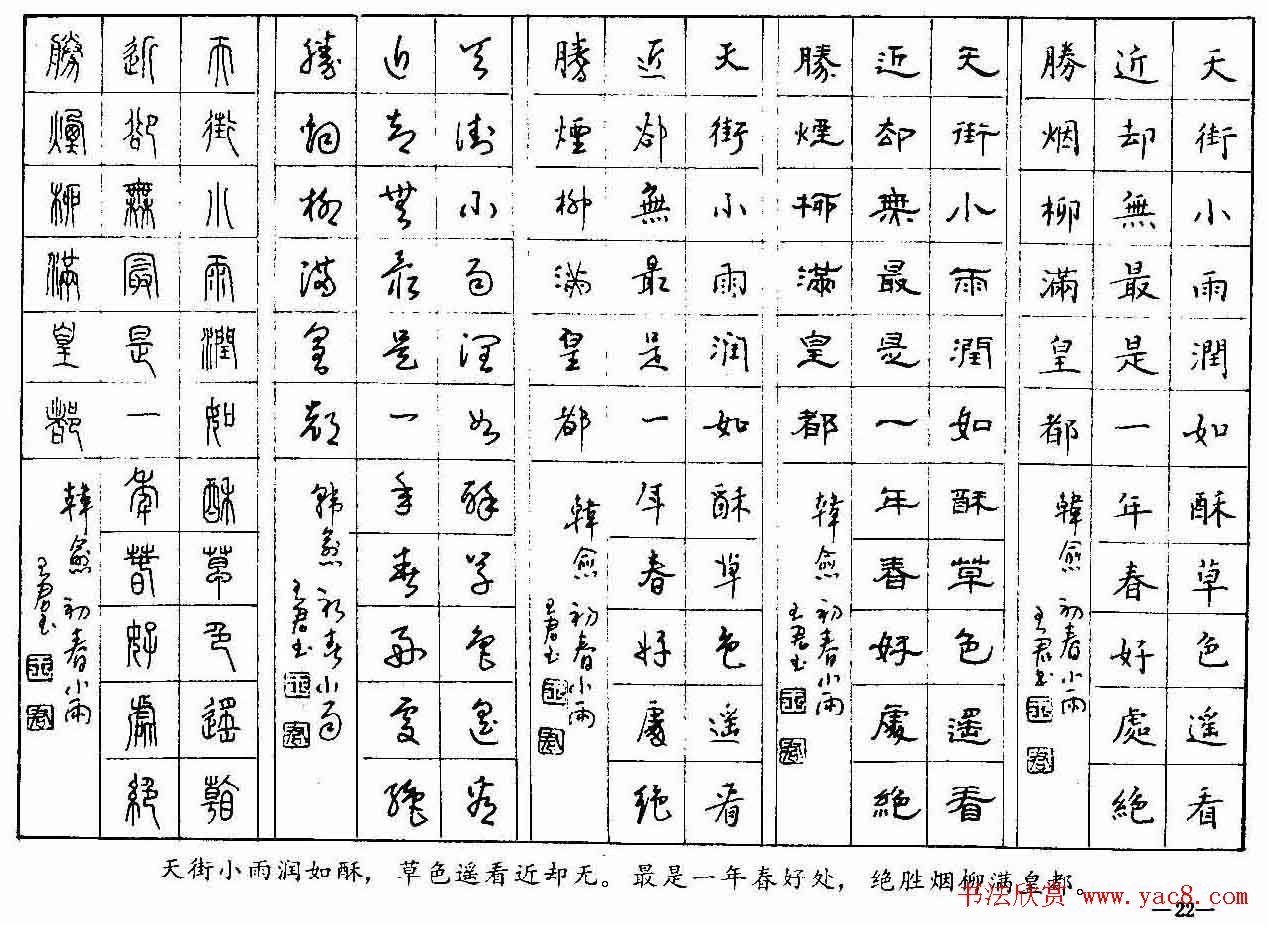 天街小雨潤如酥草色遥看
近却無最是一年春好處絶
勝烟柳滿皇都
韓愈初春小雨
王君书
天街小雨潤如酥草色遥看
近却無最是一年春好處絶
勝煙柳滿皇都
韓愈初春小雨
王君书
天街小雨润如酥草色遥看
近卻無最是一年春好處绝
勝煙柳滿皇都
韓愈初春小雨
王君书
天街小雨潤如酥草色遥看
近却無最是一年春好處絶
勝烟柳滿皇都
韓愈初春小雨
王君书
天街小雨潤如酥草色遥看
近卻無最是一年春好處絕
勝煙柳滿皇都
韓愈初春小雨
王君书
天街小雨润如酥，草色遥看近却无。最是一年春好处，绝胜烟柳满皇都。
书法欣赏 www.yac8.com
—22—